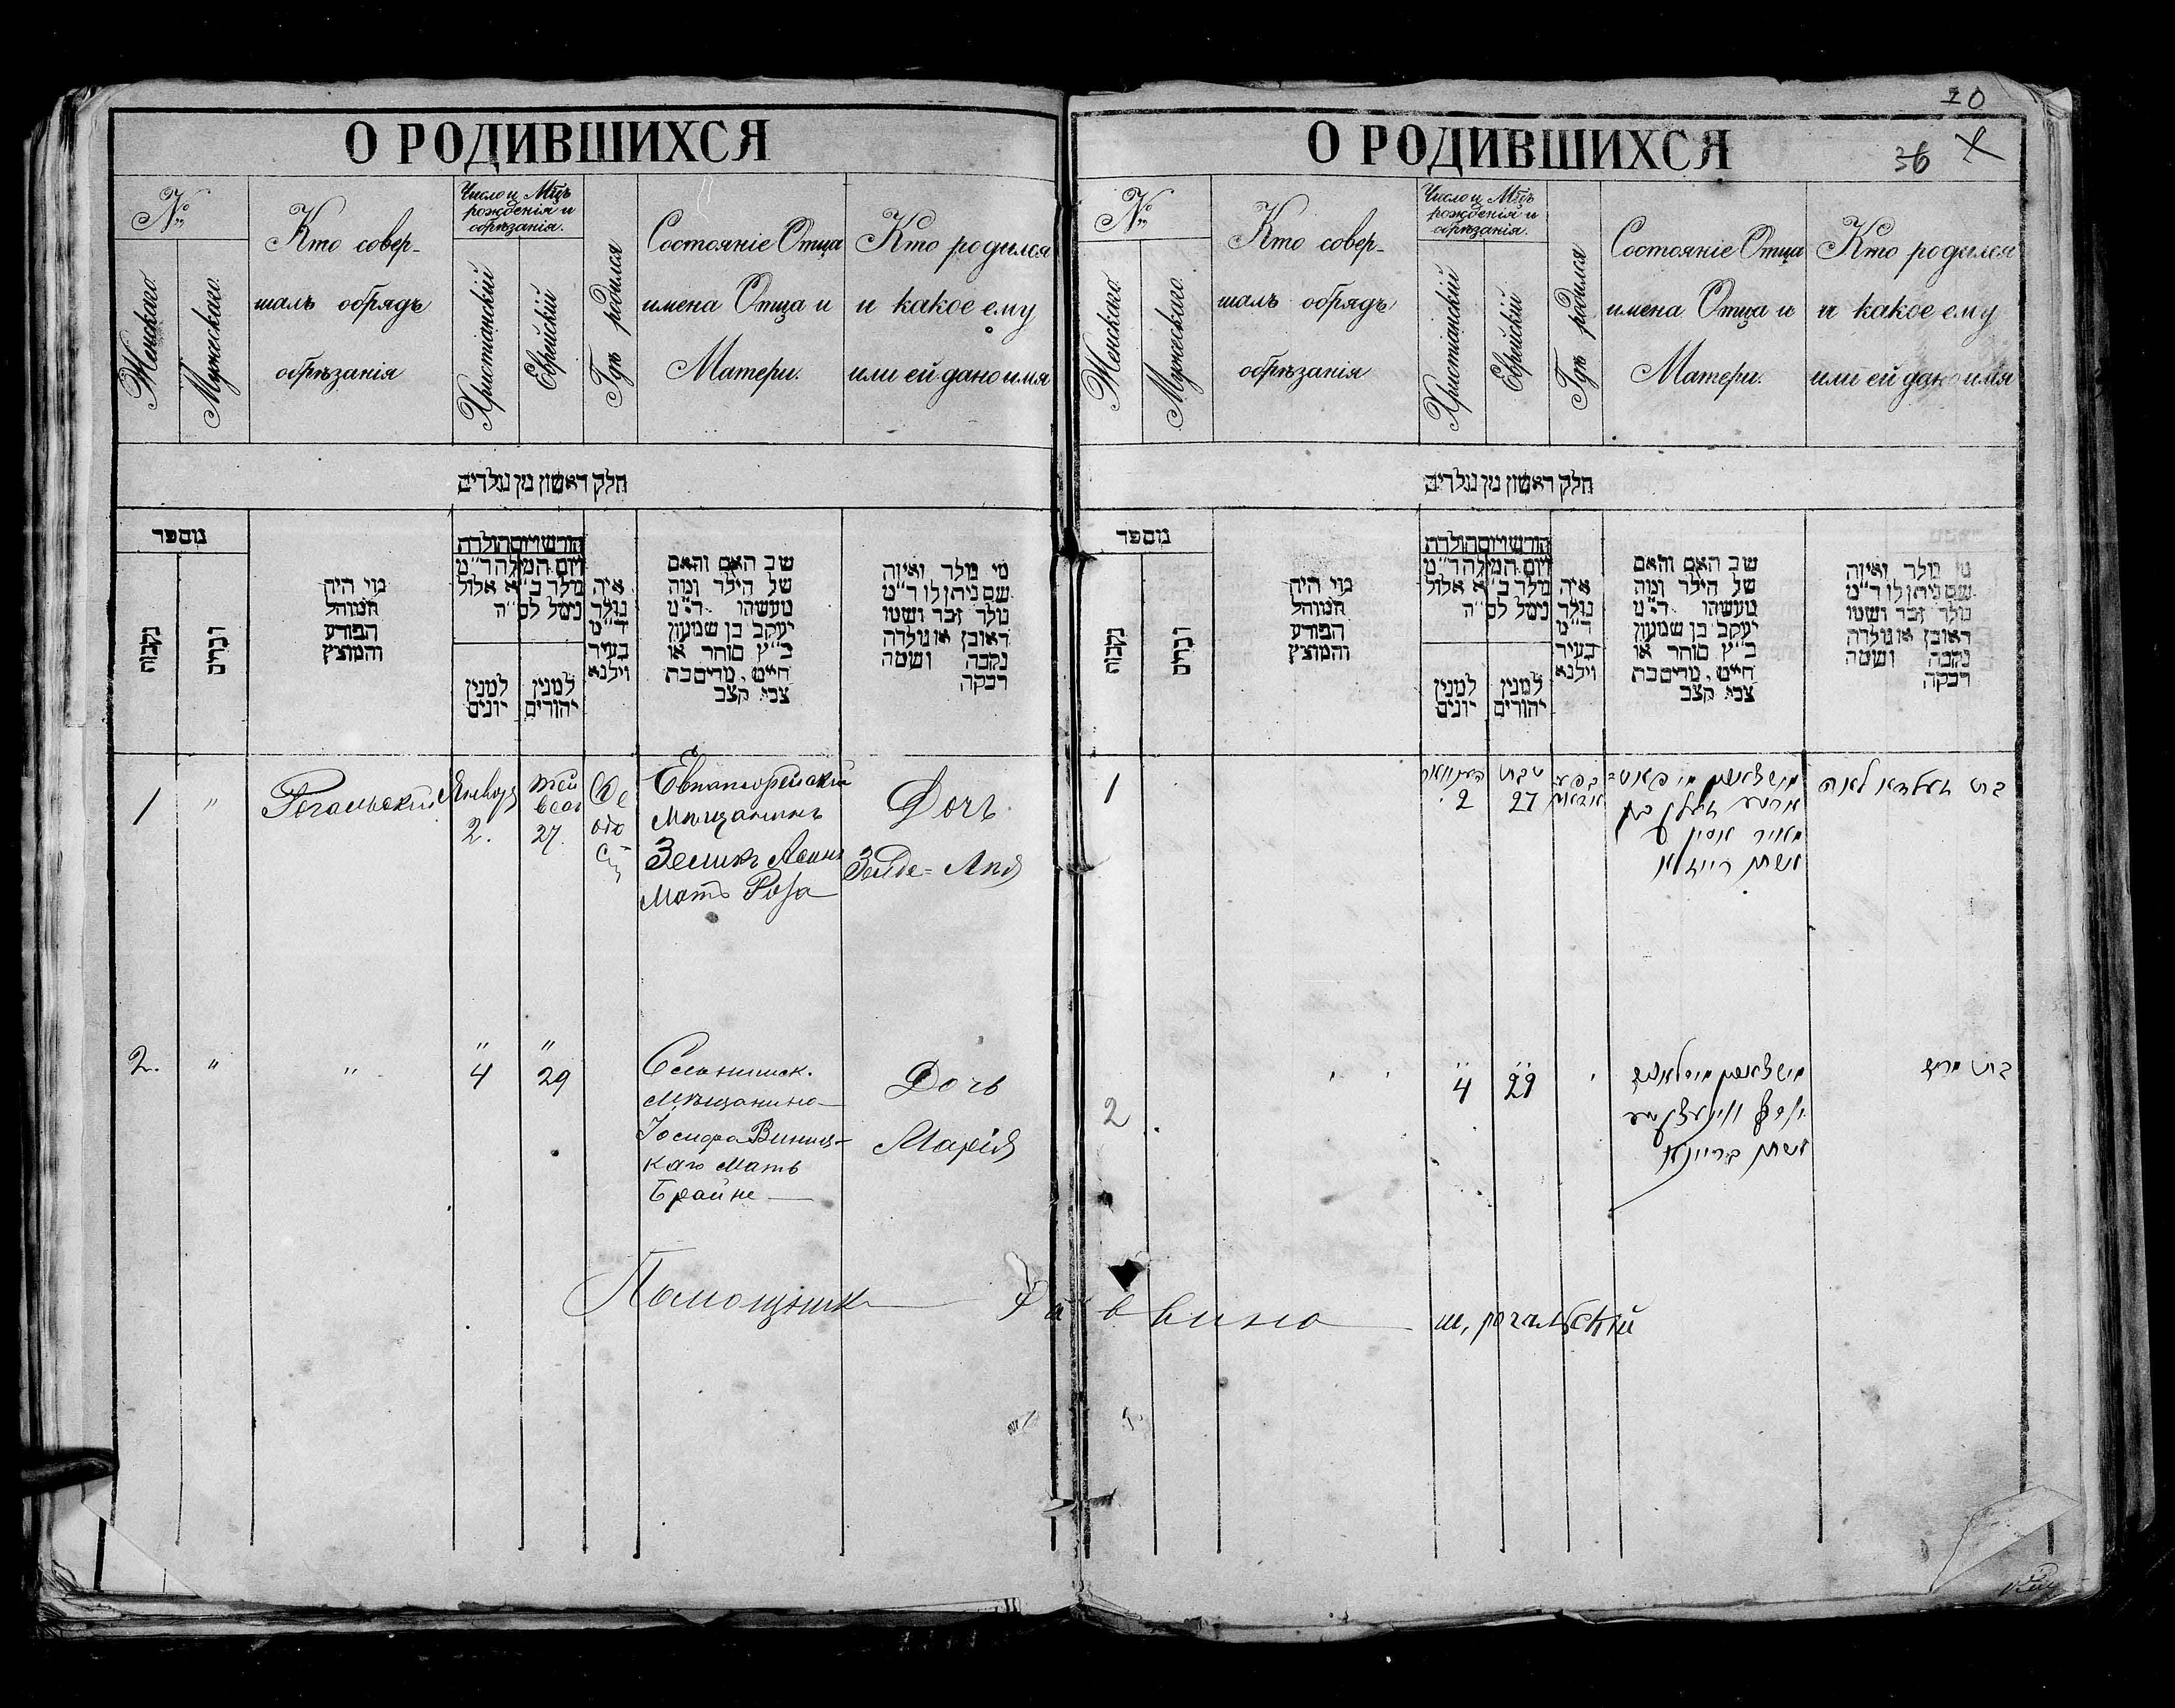 О РОДИВШИХСЯ
№
Женскаго
Мужескаго
Кто совер-
шалъ обрядъ
обрѣзанія
Число и Мцъ
рожденія и
обрѣзанія.
Христіанскій
Еврейскій
Гдѣ родился
Состояніе Отца
имена Отца и
Матери.
Кто родился
и какое ему
или ей дано имя
חלק ראשון מן נולדים
מספר
נקבות
זכרים
מי היה
המוהל
הפורע
והמוצץ
חודש ויום הולדת
ויום המילה ד"מ
נולד כ"א אלול
נימל לס"ה
למנין
יונים
למנין
יהודים
איה
נולד
ד"מ
בעיר
וילנא
שב האם והאם
של הילד ומה
מעשהו ד"מ
יעקב בן שמעון
כ"ץ סוחר או
חייט, מרים בת
צבי קצב
מי נולד ואיזה
שם ניתן לו ד"מ
נולד זכר ושמו
ראובן או נולדה
נקבה ושמה
רבקה
1 " Рогальскій Января 2. 27.
Евпаторейскій
Мѣщанинъ
Зеликъ
Мать Роза
Дочь
Зельде-
2. " " " 4 " 29
Мѣщанина
Іосифа Винниц-
каго Мать
Брайне
Дочь
Марія
Помощникъ Раввина ш, рогальскій
20
36
О РОДИВШИХСЯ
№
Женскаго
Мужескаго
Кто совер-
шалъ обрядъ
обрѣзанія
Число и Мцъ
рожденія и
обрѣзанія.
Христіанскій
Еврейскій
Гдѣ родился
Состояніе Отца
имена Отца и
Матери.
Кто родился
и какое ему
или ей дано имя
חלק ראשון מן נולדים
מספר
נקבות
זכרים
מי היה
המוהל
הפורע
והמוצץ
חודש ויום הולדת
ויום המילה ד"מ
נולד כ"א אלול
נימל לס"ה
למנין
יונים
למנין
יהודים
איה
נולד
ד"מ
בעיר
וילנא
שב האם והאם
של הילד ומה
מעשהו ד"מ
יעקב בן שמעון
כ"ץ סוחר או
חייט, מרים בת
צבי קצב
מי נולד ואיזה
שם ניתן לו ד"מ
נולד זכר ושמו
ראובן או נולדה
נקבה ושמה
רבקה
1
2
טבת
27
בת זעלדא לאה
2
4
29